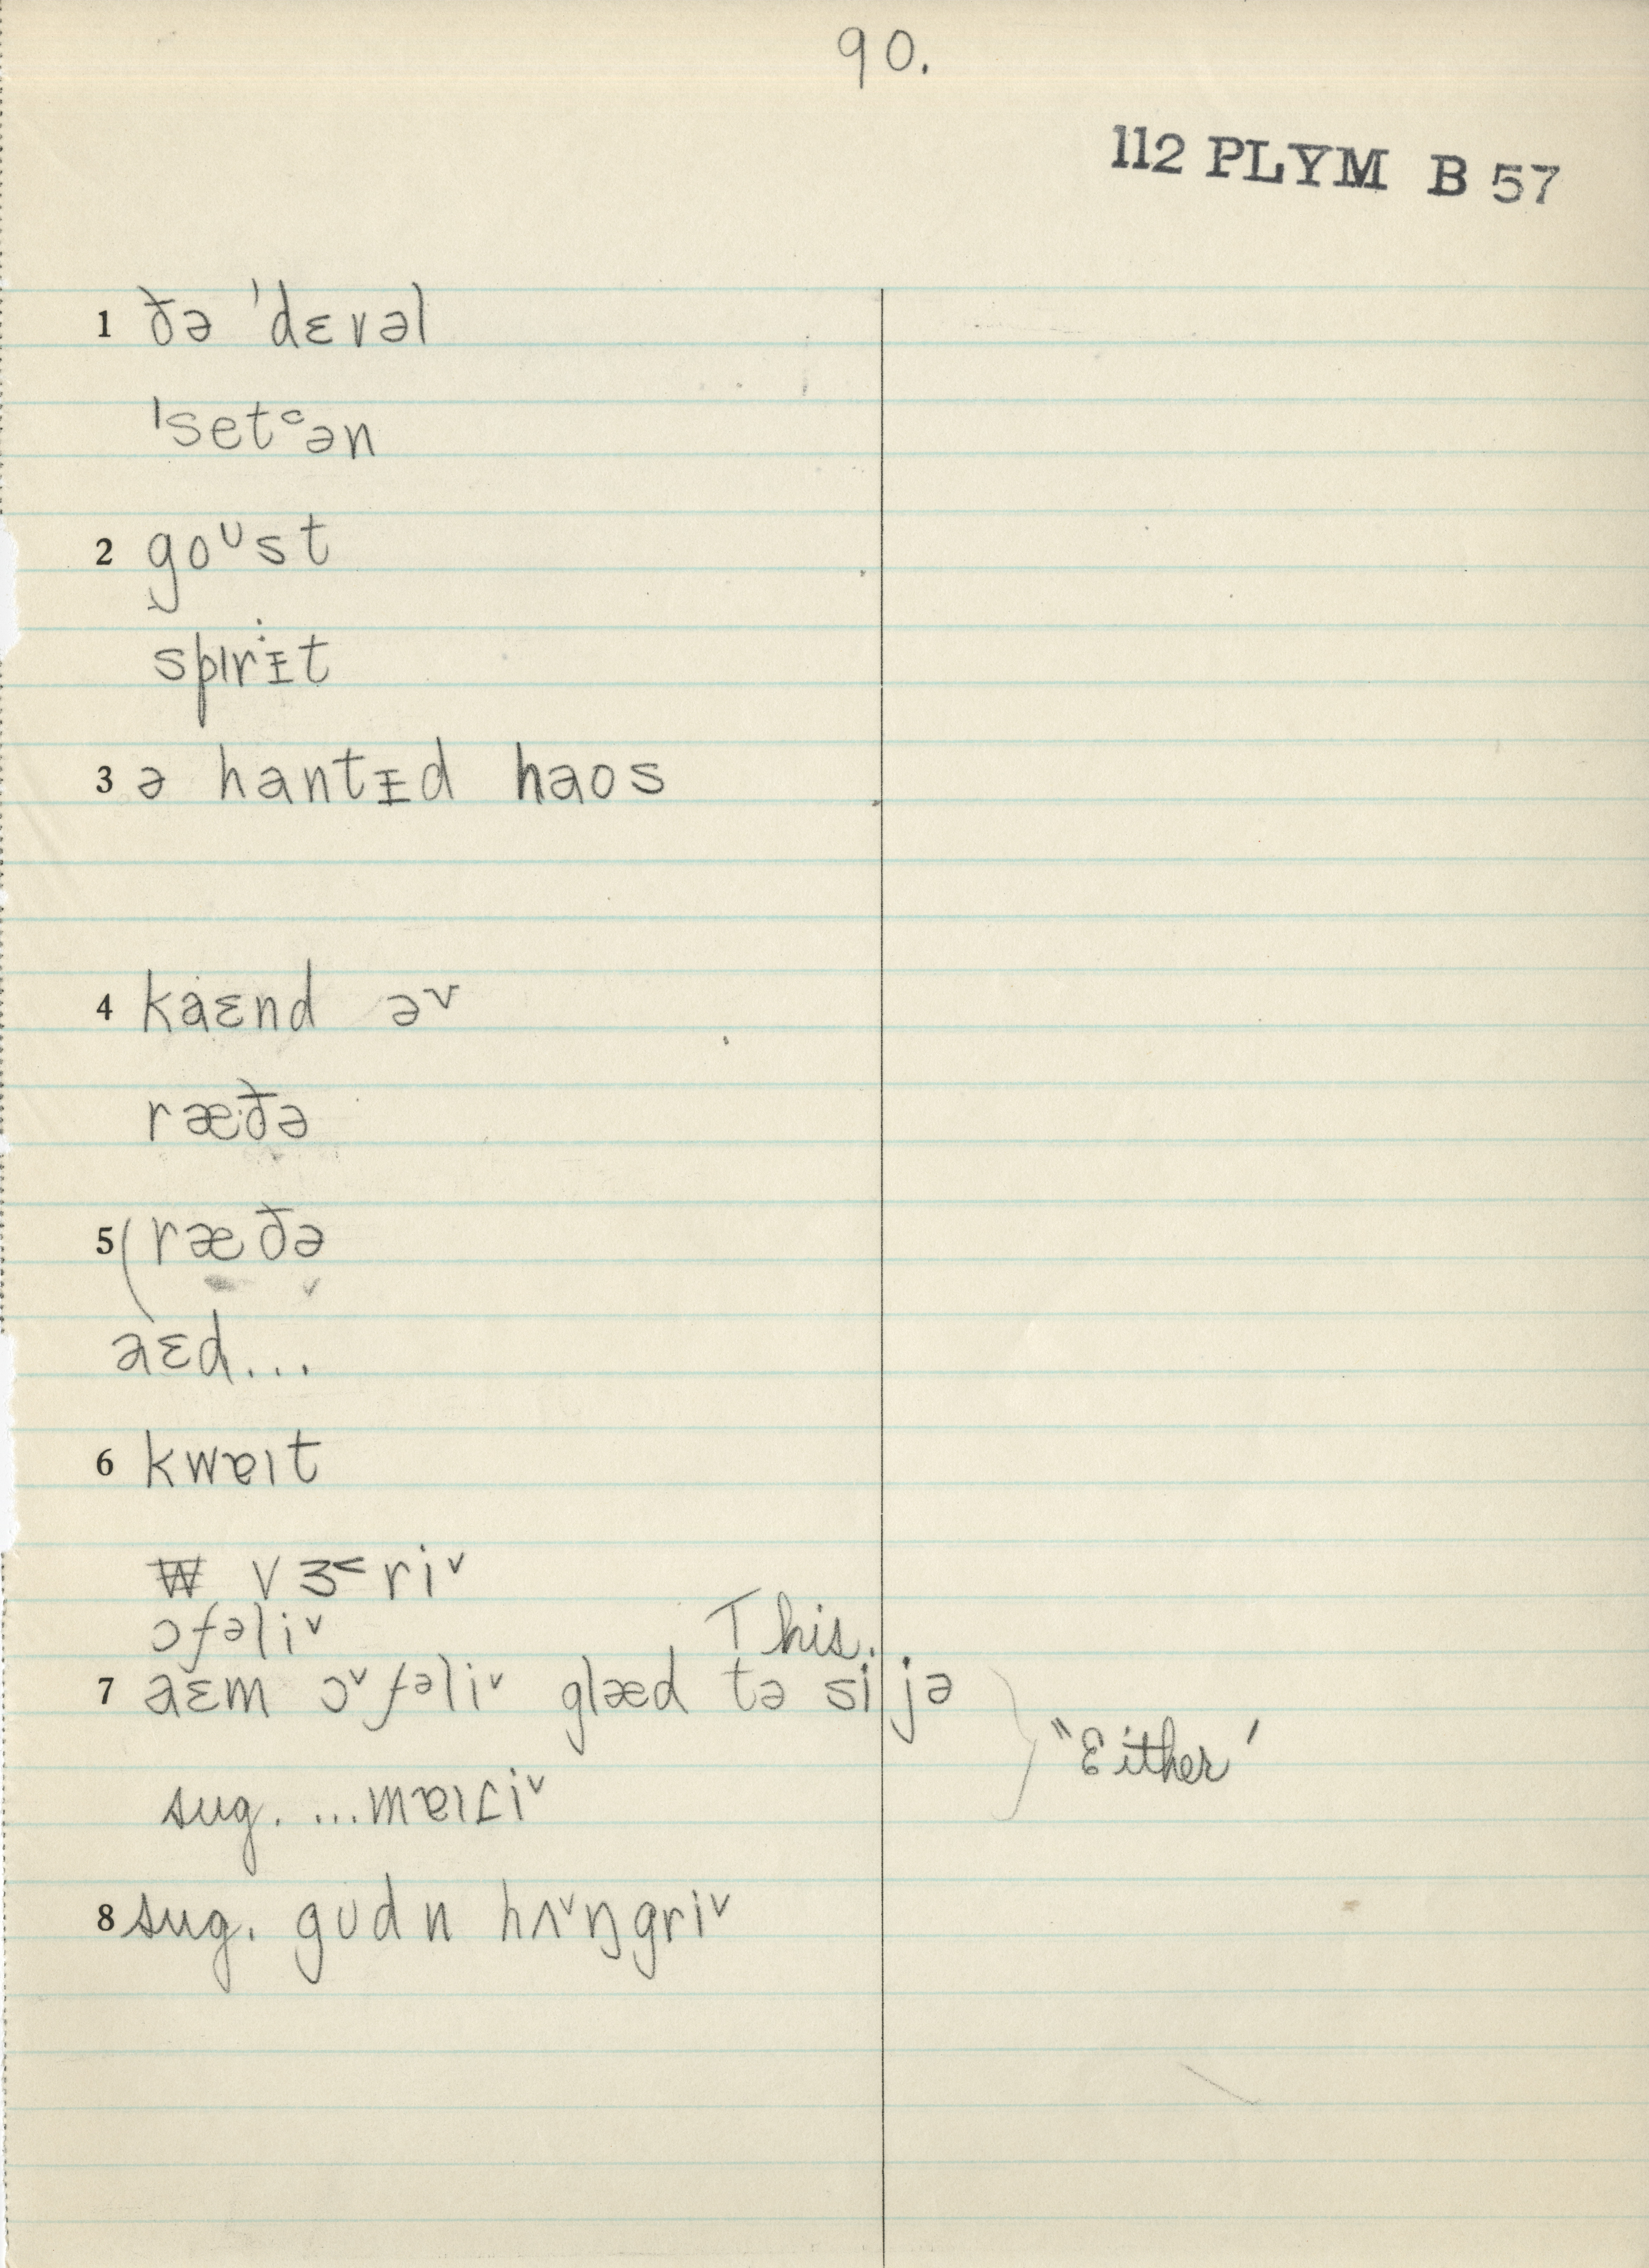 90.
112 PLYM B 57
1 ðə ˈdɛvəl
ˈsetᶜən
2 goᶷst
spɪrᵻt
3 ə hantᵻd haos
4 kaɛnd əᵛ
ræ·ðə
5 (ræðə
aɛd...
6 kwɐɪt
vɜ˂ri˅
ɔfəli˅
This.
7 aɛm ɔ˅fəli˅ glæd tə si jə
"Either'
sug. ...mɐɪɾi˅
8 sug. gʊdn hʌ˅ŋgri˅